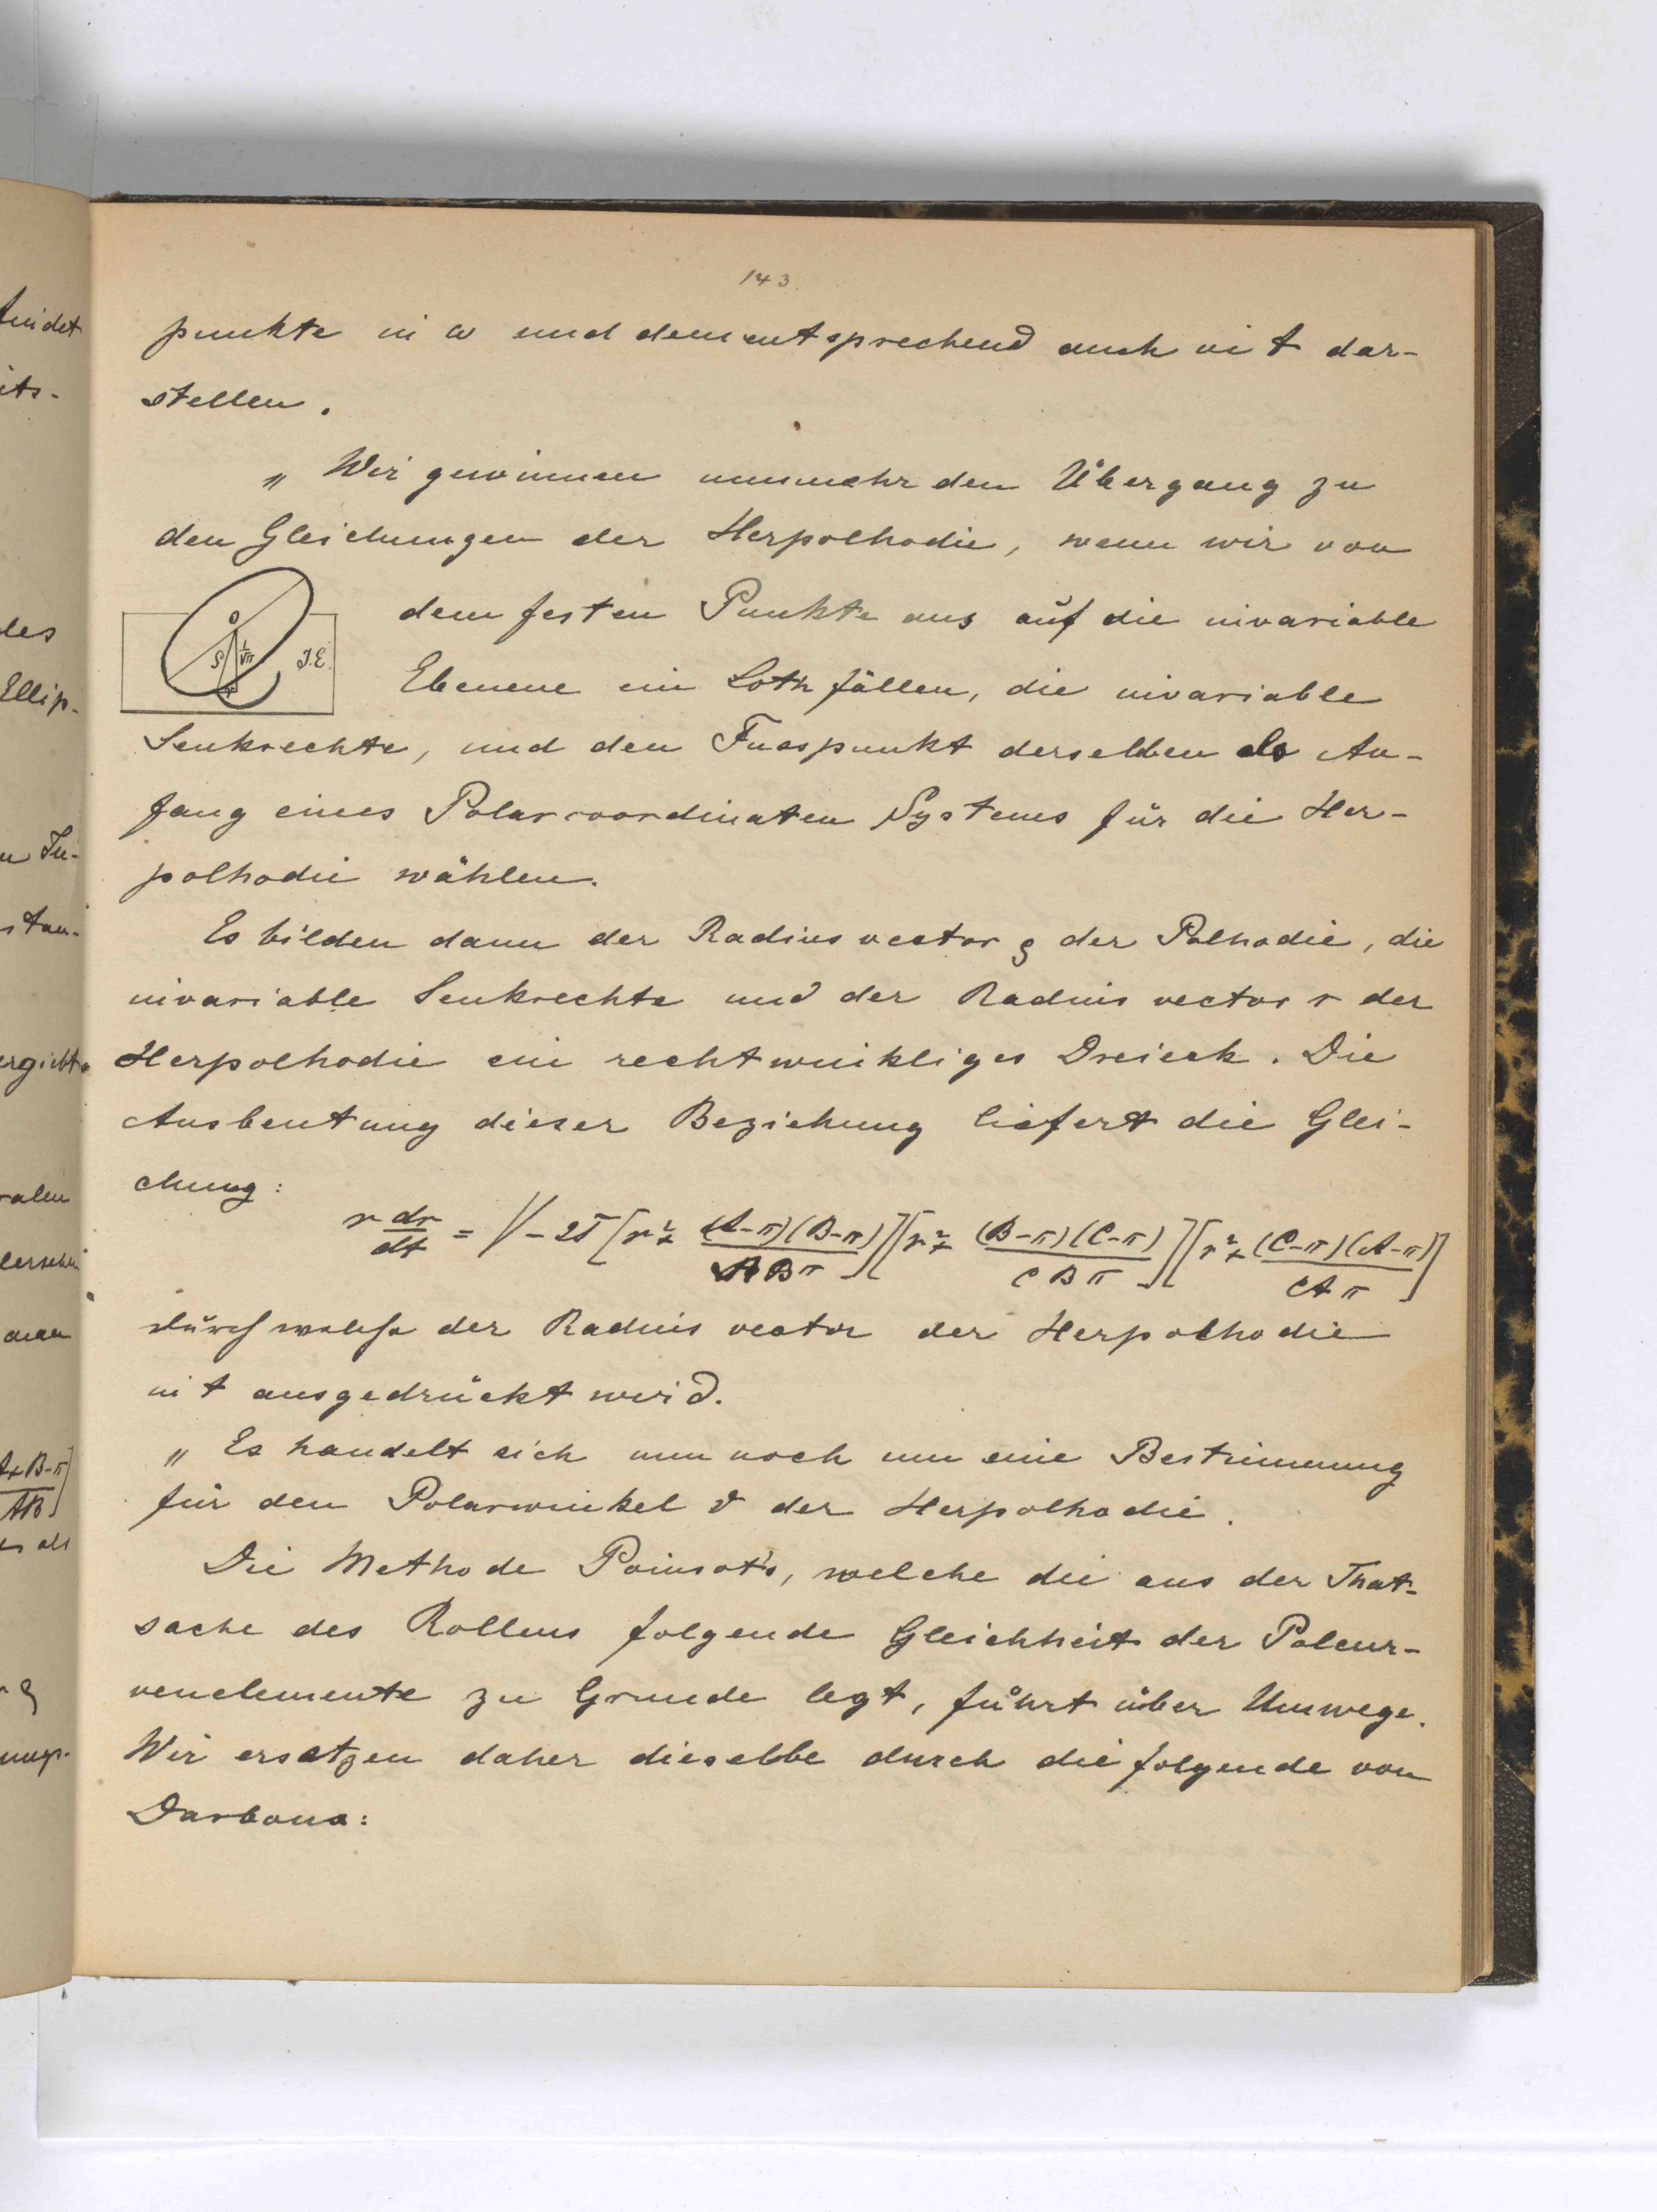 143
punkte in ω und dementsprechend auch in t dar-
stellen.
„ Wir gewinnen nunmehr den Übergang zu
den Gleichungen der Herpolhodie, wenn wir von
dem festen Punkte aus auf die invariable
O
ρ 1/√π J.E.
r
Ebenene ein Loth fällen, die invariable
Senkrechte, und den Fusspunkt derselben als An-
fang eines Polarcoordinaten Systems für die Her-
polhodie wählen.
Es bilden dann der Radius vector ρ der Polhodie, die
invariable Senkrechte und der Radius vector r der
Herpolhodie ein rechtwinkliges Dreieck. Die
Ausbeutung dieser Beziehung liefert die Glei-
chung:
r dr/dt = √ -2T [r² + (A-π)(B-π)/ABπ][r² + (B-π)(C-π)/CBπ][r² + (C-π)(A-π)/CAπ]
durch welche der Radius vector der Herpolhodie
in t ausgedrückt wird.
„ Es handelt sich nun noch um eine Bestimmung
für den Polarwinkel ϑ der Herpolhodie.
Die Methode Poinsot's, welche die aus der That-
sache des Rollens folgende Gleichheit der Polcur-
venelemente zu Grunde legt, führt über Umwege.
Wir ersetzen daher dieselbe durch die folgende von
Darboux:
findet
its-
des
Ellip-
n Tu-
stan-
ergiebt
ralen
man
A+B-π
AB
es als
ungs-